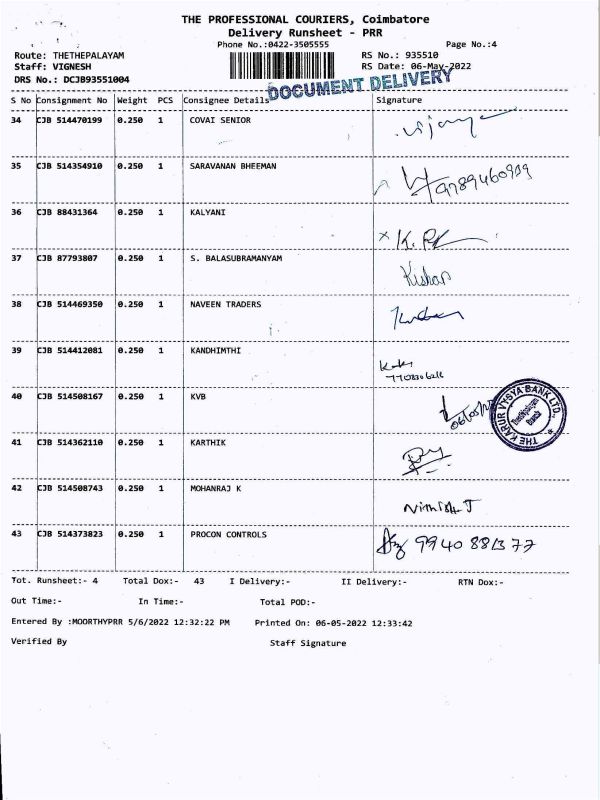 THE PROFESSIONAL COURIERS, Coimbatore
Delivery Runsheet - PRR
Phone No.:0422-3505555 Page No.:4
Route: THETHEPALAYAM RS No.: 935510
Staff: VIGNESH RS Date: 06-May-2022
DRS No.: DCJB93551004
DOCUMENT DELIVERY
S No Consignment No Weight PCS Consignee Details Signature
34 CJB 514470199 0.250 1 COVAI SENIOR
35 CJB 514354910 0.250 1 SARAVANAN BHEEMAN
36 CJB 88431364 0.250 1 KALYANI
37 CJB 87793807 0.250 1 S. BALASUBRAMANYAM Kishan
38 CJB 514469350 0.250 1 NAVEEN TRADERS
39 CJB 514412081 0.250 1 KANDHIMTHI
40 CJB 514508167 0.250 1 KVB
THE KARUR VYSYA BANK LTD.,
41 CJB 514362110 0.250 1 KARTHIK
42 CJB 514508743 0.250 1 MOHANRAJ K
43 CJB 514373823 0.250 1 PROCON CONTROLS 9940881377
Tot. Runsheet:- 4 Total Dox:- 43 I Delivery:- II Delivery:- RTN Dox:-
Out Time:- In Time:- Total POD:-
Entered By :MOORTHYPRR 5/6/2022 12:32:22 PM Printed On: 06-05-2022 12:33:42
Verified By Staff Signature